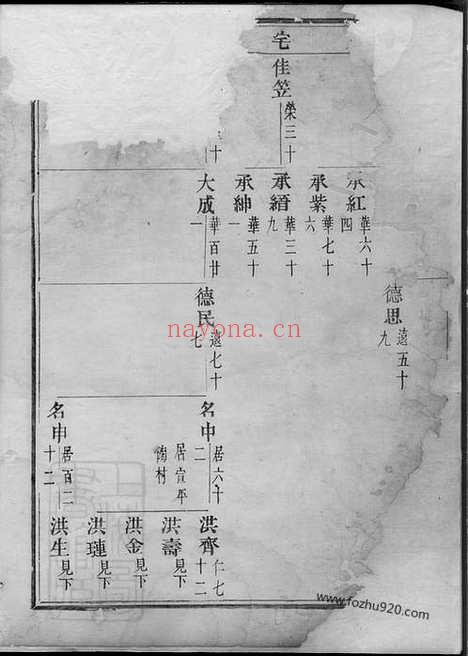 宅
佳笠 榮三十
十
承紅 華六十四
承紫 華七十六
承縉 華三十九
承紳 華五十一
大成 華百廿一
德思 遠五十九
德民 遠七十七
名申 居六十二
居宣平陶村
名申 居百二十二
洪齊 仁七十二
洪壽 見下
洪金 見下
洪璉 見下
洪生 見下
nayona.cn
www.fozhu920.com